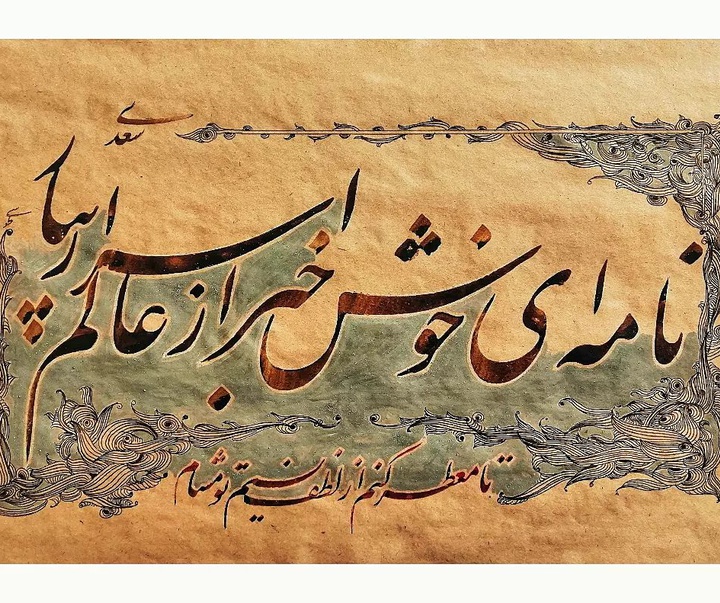 سعدی
نامه ای خوش خبر از عالم اسرار بیار
تا معطر کنم از لطف نسیم تو مشام